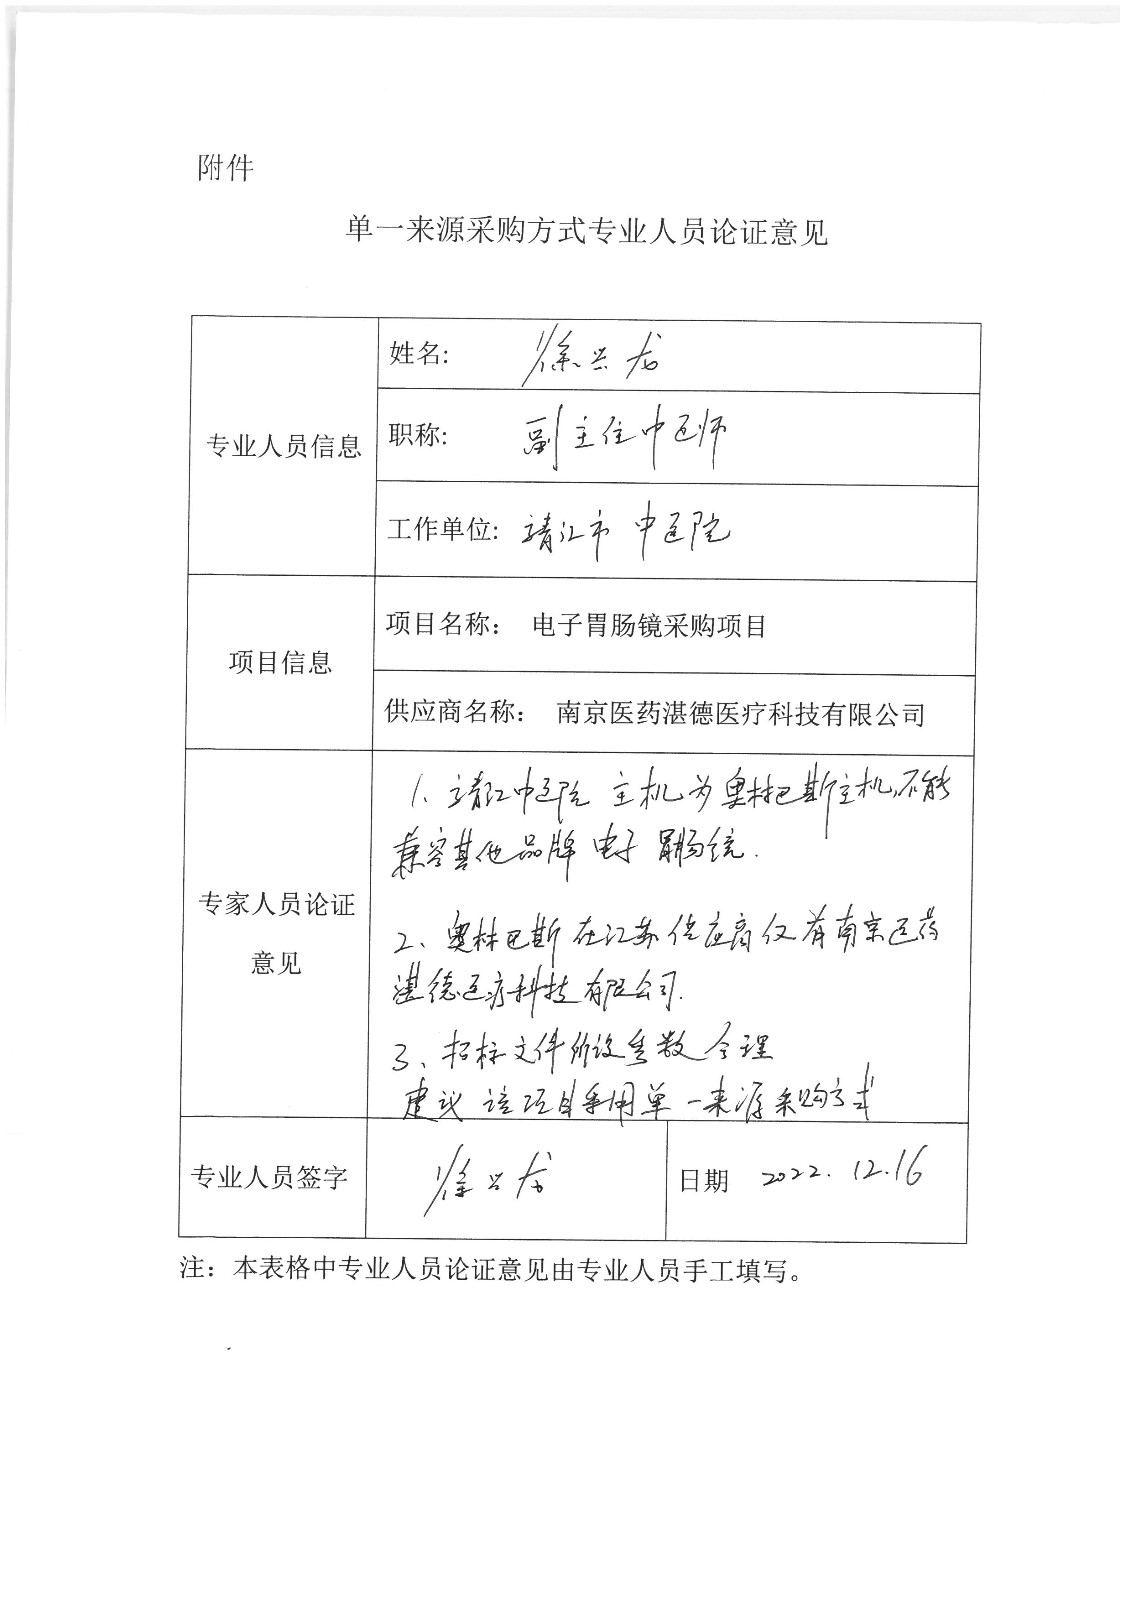 附件
单一来源采购方式专业人员论证意见
专业人员信息
姓名: 徐兴龙
职称: 副主任中医师
工作单位: 靖江市中医院
项目信息
项目名称： 电子胃肠镜采购项目
供应商名称： 南京医药湛德医疗科技有限公司
专家人员论证
意见
1、靖江中医院 主机为奥林巴斯主机,不能
兼容其他品牌电子胃肠镜.
2、奥林巴斯在江苏供应商仅有南京医药
湛德医疗科技有限公司.
3、招标文件所设参数合理
建议该项目采用单一来源采购方式
专业人员签字
徐兴龙
日期 2022.12.16
注：本表格中专业人员论证意见由专业人员手工填写。